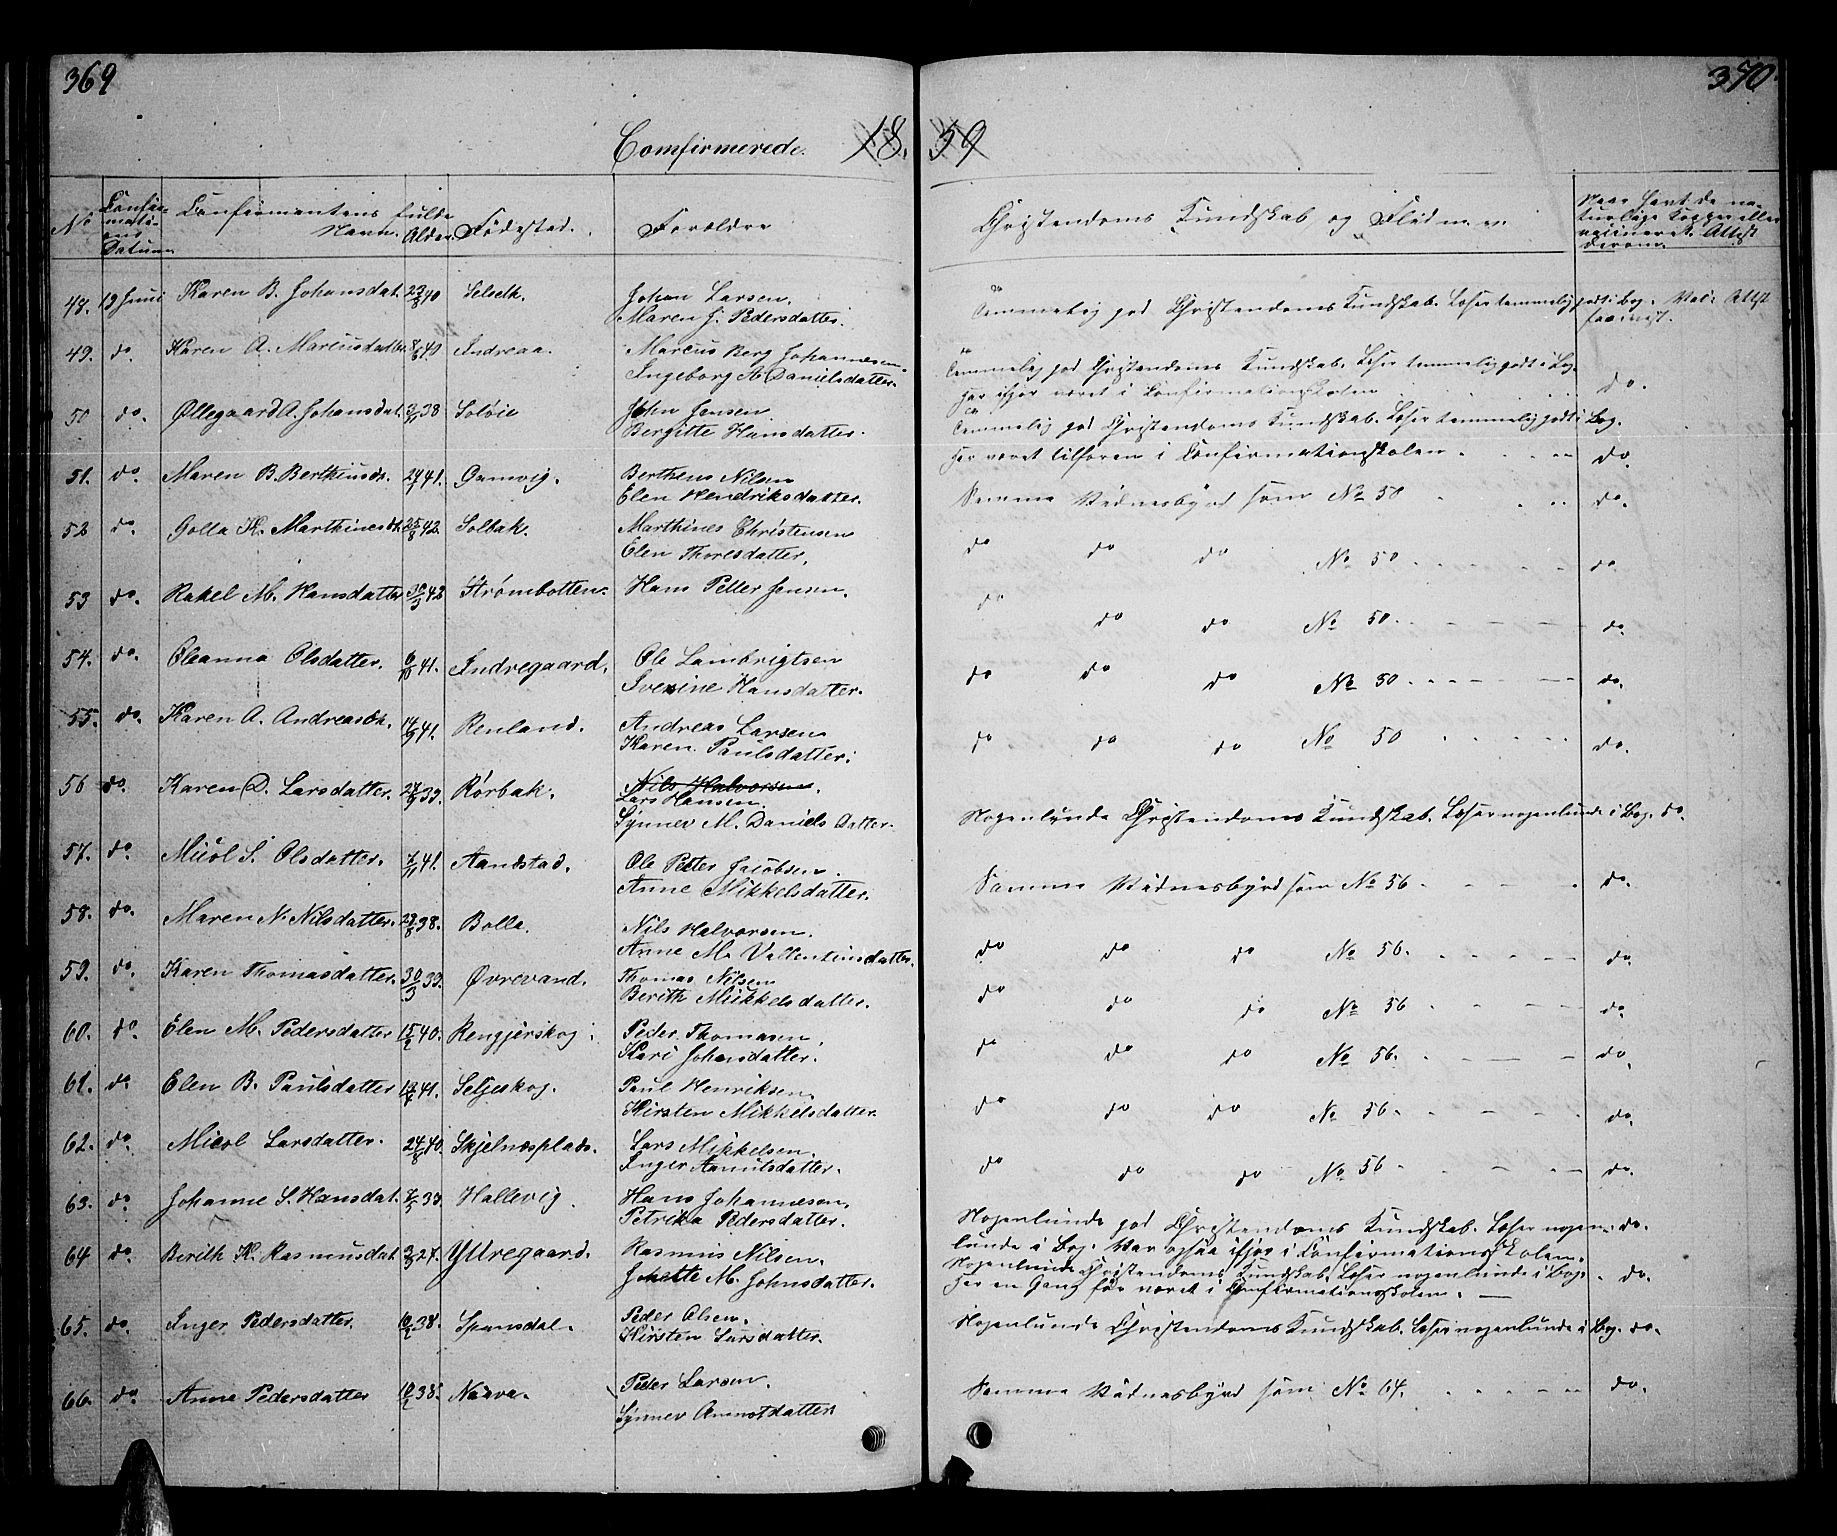 369
370
Comfirmerede. 18. 59
No
Confir-
mati-
ons
Datum
Confirmantens
Navn.
fulde
Alder.
Födestad.
Forældre
Christendoms Kundskab og Flid m. v.
Naar havt de na-
turlige Kopper eller
vaccineret. Attest
derom.
48. 19 Juni Karen B. Johansdat. 23/8 40 Selselk. Johan Larsen.
Maren J. Pedersdatter.
Temmelig god Christendoms Kundskab. Læser temmelig godt i Bog. Vac: Attest
forevist.
49. do. Karen A. Marcusdatter 40 Indreaa. Marcus Berg Johannesen
Ingeborg A. Danielsdatter.
Temmelig god Christendoms Kundskab. Læser temmelig godt i Bog.
Har ifjor været i Confirmationskolen
do.
50 do. Ollegaard A. Johansdat. 38 Soløie John Jensen
Bergitte Hansdatter.
Temmelig god Christendoms Kundskab. Læser temmelig godt i Bog.
Har været tilforen i Confirmationskolen. do.
51. do. Maren B. Berthiusdr. 41. Gamvig. Berthius Nilsen
Elen Hendriksdatter.
Samme Vidnesbyrd som No 50 do.
52 do. Golla K. Marthinesdr. 25/8 42. Solbak. Marthines Christensen
Elen Thoresdatter.
do do do No 50 do.
53 do. Rakel M. Hansdatter 30/3 42 Strømbotten. Hans Petter Jensen.
do do do No 50. do.
54. do. Oleanna Olsdatter. 6/10 41. Indregaard. Ole Lambrigtsen
Sverine Hansdatter.
do do do No 50 do.
55. do. Karen A. Andreasdr. 14/9 41. Renland. Andreas Larsen
Karen Paulsdatter.
do do do No 50 do.
56 do. Karen D. Larsdatter. 27/9 39. Rørbak. Nils Halvorsen.
Lars Hansen.
Synner M. Daniels Datter.
Nogenlunde Christendoms Kundskab. Læser nogenlunde i Bog. do.
57. do Micol S. Olsdatter. 7/11 41. Aandstad. Ole Peter Jacobsen.
Anne Mikkelsdatter.
Samme Vidnesbyrd som No 56. do.
58. do. Maren N. Nilsdatter. 38. Bolla. Nils Halvorsen.
Anne M. Vallentinsdatter.
do do do No 56. do.
59. do. Karen Thomasdatter. 30/3 39. Øvrevand. Thomas Nilsen
Berith Mikkelsdatter.
do do do No 56 do.
60. do Elen M. Pedersdatter 15/2 40. Rengjerskog. Peder Thomasen.
Kari Johansdatter.
do do do No 56. do.
61. do. Elen B. Paulsdatter 41. Seljeskog. Paul Henriksen.
Kirsten Mikkelsdatter.
do do do No 56. do.
62. do. Micol Larsdatter. 24/8 40. Skjelnesplads. Lars Mikkelsen.
Inger Arnutsdatter.
do do do No 56 do.
63. do. Johanne S. Hansdat. 37. Hallevig. Hans Johannesen.
Petrika Pedersdatter.
Nogenlunde god Christendoms Kundskab. Læser nogen-
lunde i Bog. Var ogsaa ifjor i Confirmationsskolen.
do.
64 do. Berith K. Rasmusdat. 27. Yttregaard. Rasmus Nilsen.
Johette M. Johnsdatter.
Nogenlunde Christendoms Kundskab. Læser nogenlunde i Bog.
Har en Gang før været i Confirmationsskolen.
do.
65. do. Inger Pedersdatter. 38. Spansdal. Peder Olsen.
Kirsten Larsdatter.
Nogenlunde Christendoms Kundskab. Læser nogenlunde i Bog. do.
66. do. Anne Pedersdatter 38. Naava. Peder Larsen.
Synner Arnotdatter
Samme Vidnesbyrd som No 64. do.